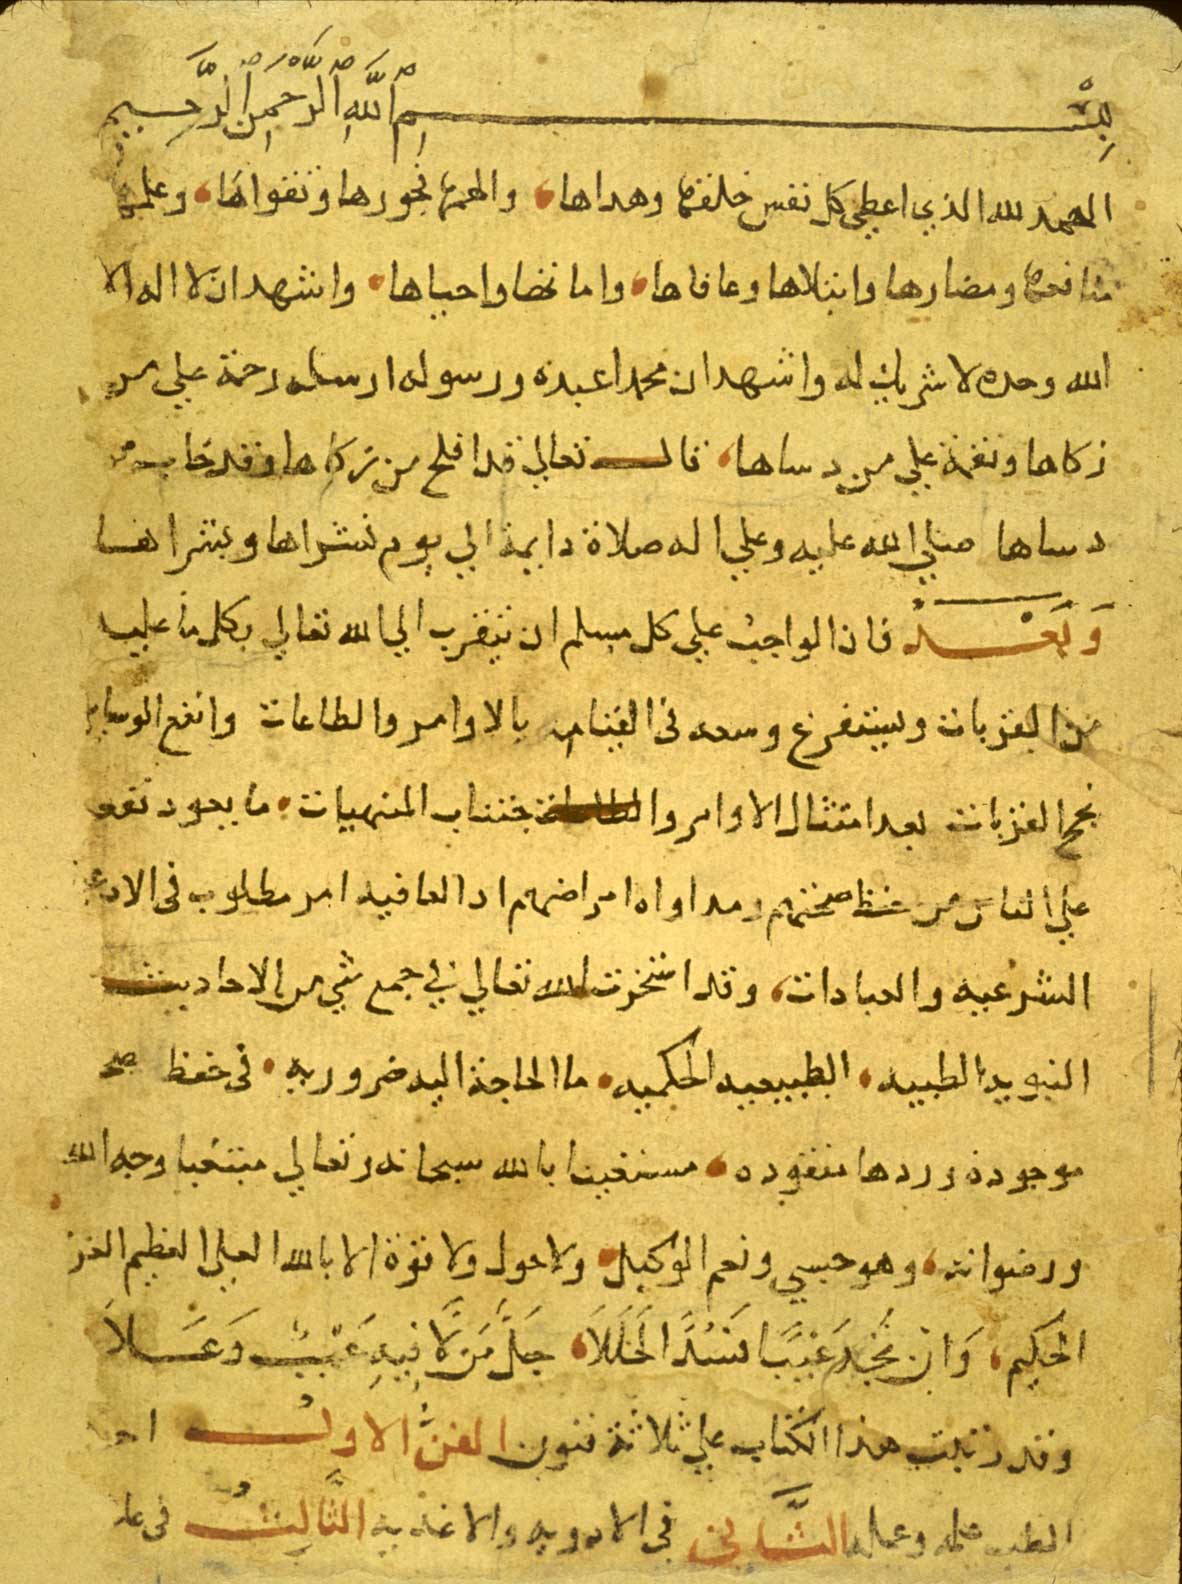 بسم الله الرحمن الرحيم
الحمد لله الذي اعطي كل نفس خلقها وهداها، والهمها فجورها وتقواها، وعلمها
منافعها ومضارها وابتلاها وعافاها، واماتها واحياها، واشهد ان لا اله الا
الله وحده لا شريك له واشهد ان محمدا عبده ورسوله ارسله رحمة علي من
زكاها ونقمة علي من دساها، قال تعالي قد افلح من زكاها وقد خاب من
دساها صلي الله عليه وعلي اله صلاة دايمة الي يوم نشراها وبشراها
وَبَعْد فان الواجب علي كل مسلم ان يتقرب الي الله تعالي بكل ما
من القربات ويستفرغ وسعه في القيام بالاوامر والطاعات وانفع الوسايل
نجح القربات بعد امتثال الاوامر جتناب المنهيات، ما يعود نفعه
علي الناس من حفظ صحتهم ومداواه امراضهم اذ العافيه امر مطلوب في الادعية
الشرعيه والعبادات، وقد استخرت الله تعالي في جمع شي من الاحاديث
النبويه الطبيه، الطبيعيه الحكميه، ما الحاجة اليه ضروريه، في حفظ صحة
موجوده وردها مفقوده، مستعينا بالله سبحانه وتعالي مبتغيا وجه الله
ورضوانه، وهو حسبي ونعم الوكيل، ولا حول ولا قوة الا بالله العلي العظيم العزيز
الحكيم، وَان تَجِد عَيْبًا فَسُدَّ الخَلَلاَ، جَلَّ مَن لَّا فِيهِ عَيْبٌ وَعَــلَا
وقد رتبت هذا الكتاب علي ثلاثة فنون الفنُّ الاولُ
الطب علمه وعمله الثَّاني في الادويه والاغذيه الثَّالِثُ في